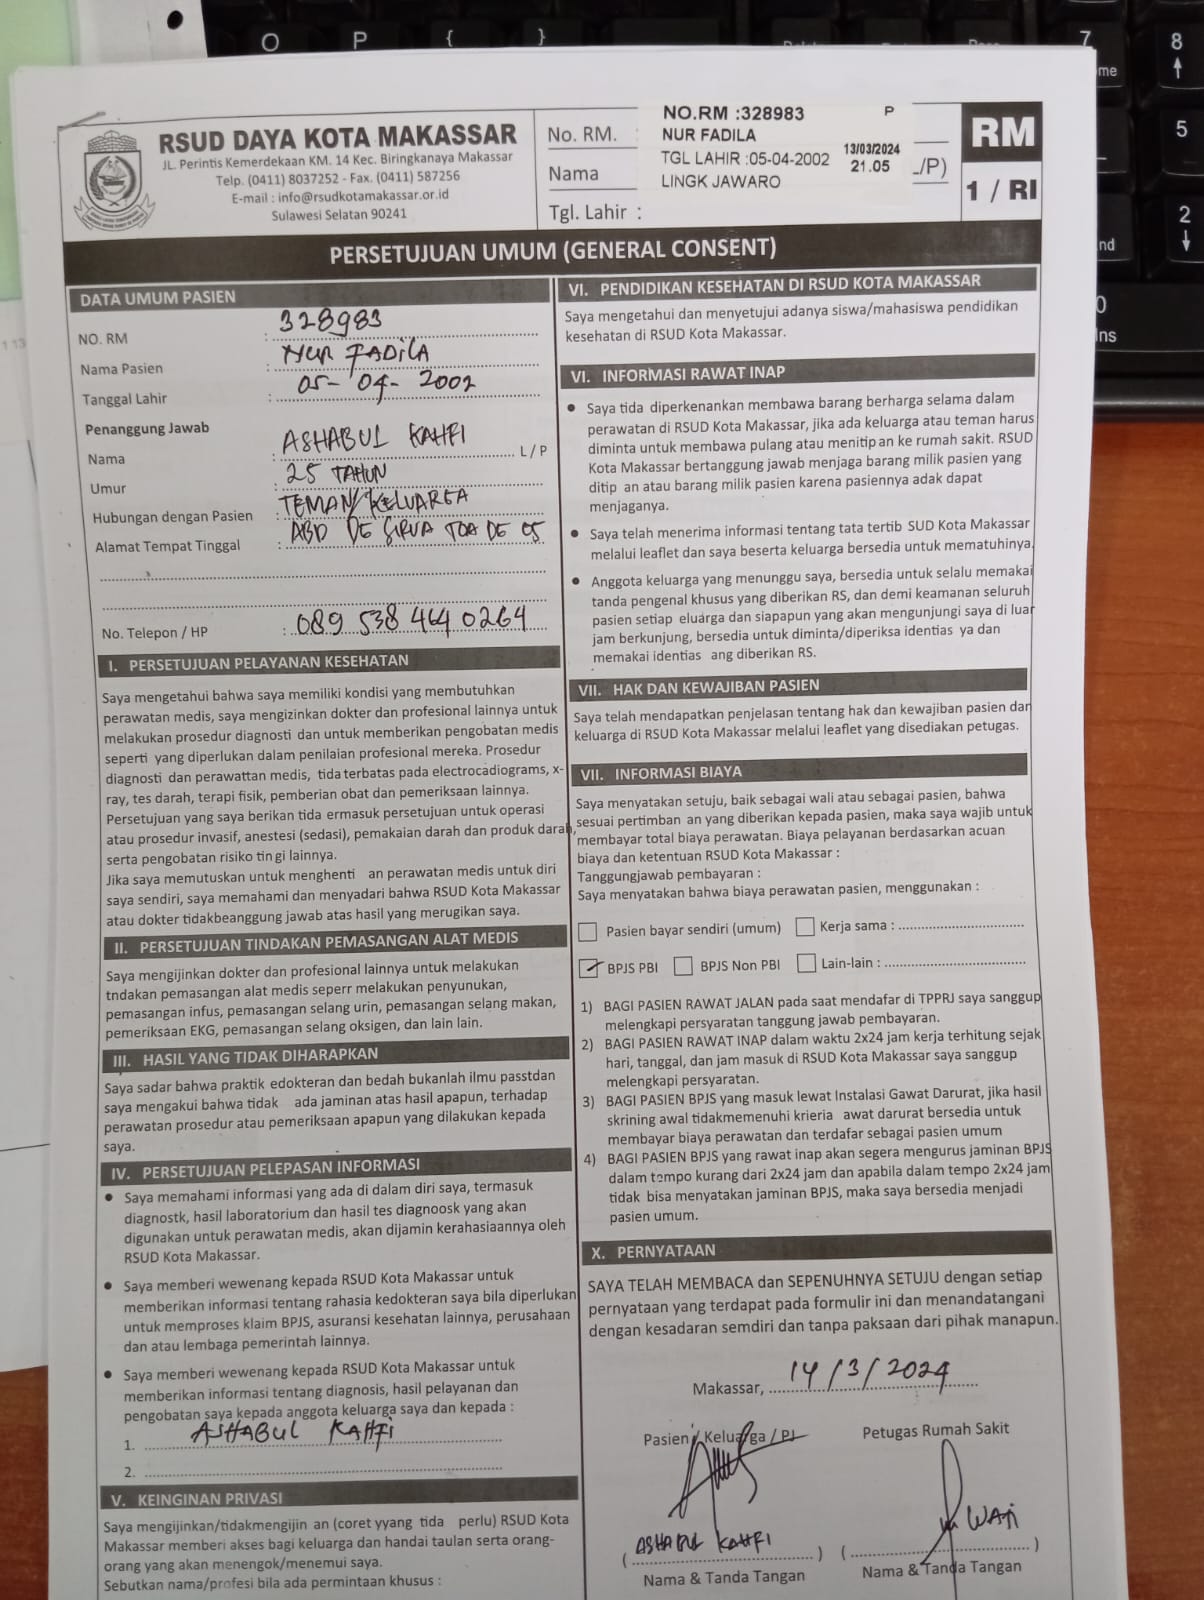 RSUD DAYA KOTA MAKASSAR
JL. Perintis Kemerdekaan KM. 14 Kec. Biringkanaya Makassar
Telp. (0411) 8037252 - Fax. (0411) 587256
E-mail : info@rsudkotamakassar.or.id
Sulawesi Selatan 90241
No. RM. :
Nama
Tgl. Lahir :
NO.RM :328983 P
NUR FADILA
TGL LAHIR :05-04-2002
LINGK JAWARO
13/03/2024
21.05
/P)
RM
1 / RI
PERSETUJUAN UMUM (GENERAL CONSENT)
DATA UMUM PASIEN
NO. RM : 328983
Nama Pasien : NUR FADILA
Tanggal Lahir : 05-04-2002
Penanggung Jawab
Nama : ASHABUL KAHFI L / P
Umur : 25 TAHUN
Hubungan dengan Pasien : TEMAN/KELUARGA
Alamat Tempat Tinggal : ABD DG SIRUA
No. Telepon / HP : 089 538 464 0264
I. PERSETUJUAN PELAYANAN KESEHATAN
Saya mengetahui bahwa saya memiliki kondisi yang membutuhkan
perawatan medis, saya mengizinkan dokter dan profesional lainnya untuk
melakukan prosedur diagnosti dan untuk memberikan pengobatan medis
seperti yang diperlukan dalam penilaian profesional mereka. Prosedur
diagnosti dan perawattan medis, tida terbatas pada electrocadiograms, x-
ray, tes darah, terapi fisik, pemberian obat dan pemeriksaan lainnya.
Persetujuan yang saya berikan tida ermasuk persetujuan untuk operasi
atau prosedur invasif, anestesi (sedasi), pemakaian darah dan produk darah,
serta pengobatan risiko tin gi lainnya.
Jika saya memutuskan untuk menghenti an perawatan medis untuk diri
saya sendiri, saya memahami dan menyadari bahwa RSUD Kota Makassar
atau dokter tidakbeanggung jawab atas hasil yang merugikan saya.
II. PERSETUJUAN TINDAKAN PEMASANGAN ALAT MEDIS
Saya mengijinkan dokter dan profesional lainnya untuk melakukan
tndakan pemasangan alat medis seperr melakukan penyunukan,
pemasangan infus, pemasangan selang urin, pemasangan selang makan,
pemeriksaan EKG, pemasangan selang oksigen, dan lain lain.
III. HASIL YANG TIDAK DIHARAPKAN
Saya sadar bahwa praktik edokteran dan bedah bukanlah ilmu passtdan
saya mengakui bahwa tidak ada jaminan atas hasil apapun, terhadap
perawatan prosedur atau pemeriksaan apapun yang dilakukan kepada
saya.
IV. PERSETUJUAN PELEPASAN INFORMASI
• Saya memahami informasi yang ada di dalam diri saya, termasuk
diagnostk, hasil laboratorium dan hasil tes diagnoosk yang akan
digunakan untuk perawatan medis, akan dijamin kerahasiaannya oleh
RSUD Kota Makassar.
• Saya memberi wewenang kepada RSUD Kota Makassar untuk
memberikan informasi tentang rahasia kedokteran saya bila diperlukan
untuk memproses klaim BPJS, asuransi kesehatan lainnya, perusahaan
dan atau lembaga pemerintah lainnya.
• Saya memberi wewenang kepada RSUD Kota Makassar untuk
memberikan informasi tentang diagnosis, hasil pelayanan dan
pengobatan saya kepada anggota keluarga saya dan kepada :
1. ASHABUL KAHFI
2.
V. KEINGINAN PRIVASI
Saya mengijinkan/tidakmengijin an (coret yyang tida perlu) RSUD Kota
Makassar memberi akses bagi keluarga dan handai taulan serta orang-
orang yang akan menengok/menemui saya.
Sebutkan nama/profesi bila ada permintaan khusus :
VI. PENDIDIKAN KESEHATAN DI RSUD KOTA MAKASSAR
Saya mengetahui dan menyetujui adanya siswa/mahasiswa pendidikan
kesehatan di RSUD Kota Makassar.
VI. INFORMASI RAWAT INAP
• Saya tida diperkenankan membawa barang berharga selama dalam
perawatan di RSUD Kota Makassar, jika ada keluarga atau teman harus
diminta untuk membawa pulang atau menitip an ke rumah sakit. RSUD
Kota Makassar bertanggung jawab menjaga barang milik pasien yang
ditip an atau barang milik pasien karena pasiennya adak dapat
menjaganya.
• Saya telah menerima informasi tentang tata tertib SUD Kota Makassar
melalui leaflet dan saya beserta keluarga bersedia untuk mematuhinya.
• Anggota keluarga yang menunggu saya, bersedia untuk selalu memakai
tanda pengenal khusus yang diberikan RS, dan demi keamanan seluruh
pasien setiap eluárga dan siapapun yang akan mengunjungi saya di luar
jam berkunjung, bersedia untuk diminta/diperiksa identias ya dan
memakai identias ang diberikan RS.
VII. HAK DAN KEWAJIBAN PASIEN
Saya telah mendapatkan penjelasan tentang hak dan kewajiban pasien dan
keluarga di RSUD Kota Makassar melalui leaflet yang disediakan petugas.
VII. INFORMASI BIAYA
Saya menyatakan setuju, baik sebagai wali atau sebagai pasien, bahwa
sesuai pertimban an yang diberikan kepada pasien, maka saya wajib untuk
membayar total biaya perawatan. Biaya pelayanan berdasarkan acuan
biaya dan ketentuan RSUD Kota Makassar :
Tanggungjawab pembayaran :
Saya menyatakan bahwa biaya perawatan pasien, menggunakan :
Pasien bayar sendiri (umum) Kerja sama :
BPJS PBI BPJS Non PBI Lain-lain :
1) BAGI PASIEN RAWAT JALAN pada saat mendafar di TPPRJ saya sanggup
melengkapi persyaratan tanggung jawab pembayaran.
2) BAGI PASIEN RAWAT INAP dalam waktu 2x24 jam kerja terhitung sejak
hari, tanggal, dan jam masuk di RSUD Kota Makassar saya sanggup
melengkapi persyaratan.
3) BAGI PASIEN BPJS yang masuk lewat Instalasi Gawat Darurat, jika hasil
skrining awal tidakmemenuhi krieria awat darurat bersedia untuk
membayar biaya perawatan dan terdafar sebagai pasien umum
4) BAGI PASIEN BPJS yang rawat inap akan segera mengurus jaminan BPJS
dalam tempo kurang dari 2x24 jam dan apabila dalam tempo 2x24 jam
tidak bisa menyatakan jaminan BPJS, maka saya bersedia menjadi
pasien umum.
X. PERNYATAAN
SAYA TELAH MEMBACA dan SEPENUHNYA SETUJU dengan setiap
pernyataan yang terdapat pada formulir ini dan menandatangani
dengan kesadaran semdiri dan tanpa paksaan dari pihak manapun.
Makassar, 14/3/2024
Pasien / Keluarga / PJ Petugas Rumah Sakit
(ASHABUL KAHFI) (WAN)
Nama & Tanda Tangan Nama & Tanda Tangan
O P { }
7
8
5
2
0
Ins